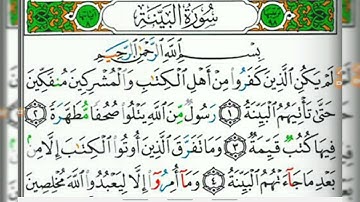 سُورَةُ البَيِّنَةِ
بِسْمِ اللَّهِ الرَّحْمَٰنِ الرَّحِيمِ
لَمْ يَكُنِ الَّذِينَ كَفَرُوا مِنْ أَهْلِ الْكِتَابِ وَالْمُشْرِكِينَ مُنفَكِّينَ
حَتَّىٰ تَأْتِيَهُمُ الْبَيِّنَةُ ١ رَسُولٌ مِّنَ اللَّهِ يَتْلُوا صُحُفًا مُّطَهَّرَةً ٢
فِيهَا كُتُبٌ قَيِّمَةٌ ٣ وَمَا تَفَرَّقَ الَّذِينَ أُوتُوا الْكِتَابَ إِلَّا مِن
بَعْدِ مَا جَاءَتْهُمُ الْبَيِّنَةُ ٤ وَمَا أُمِرُوا إِلَّا لِيَعْبُدُوا اللَّهَ مُخْلِصِينَ